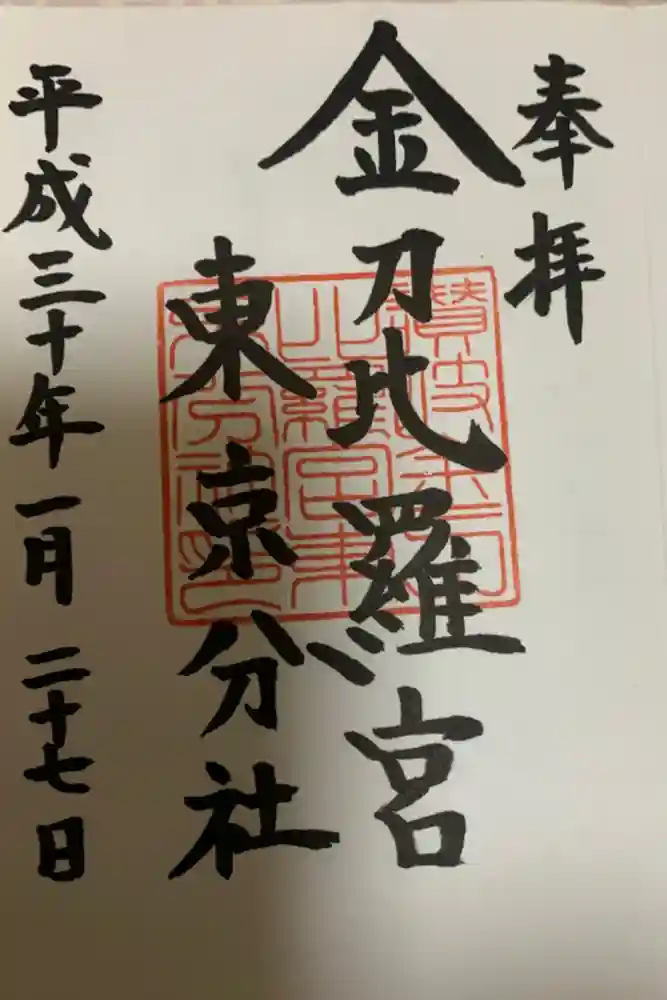 奉拝
金刀比羅宮
東京分社
平成三十年一月二十七日